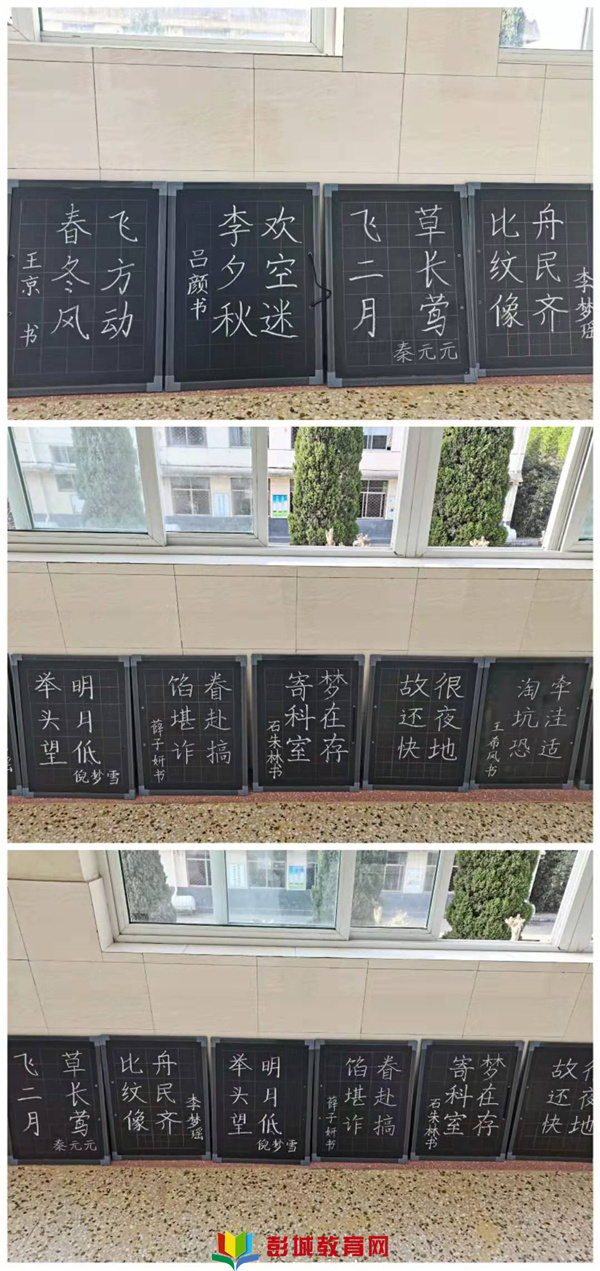 飞方动
春冬风
王京 书
欢空迷
李夕秋
吕颜书
草长莺
飞二月
秦元元
舟民齐
比纹像
李梦瑶
明月低
举头望
倪梦雪
眷赴搞
馅堪诈
薛子妍书
梦在存
寄科室
石朱林书
很夜地
故还快
牵注适
淘坑恐
王希风书
草长莺
飞二月
秦元元
舟民齐
比纹像
李梦瑶
明月低
举头望
倪梦雪
眷赴搞
馅堪诈
薛子妍书
梦在存
寄科室
石朱林书
很夜地
故还快
彭城教育网